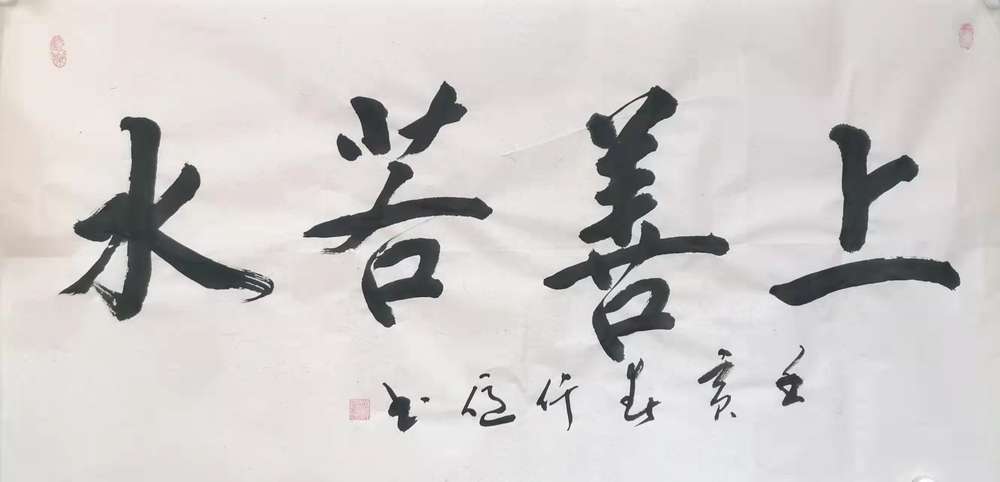 上善若水
壬寅春行隐书